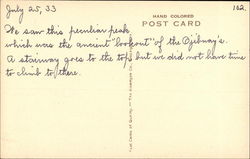 July 25, 33
102.
HAND COLORED
POST CARD
We saw this peculiar peak
which was the ancient "lookout" of the Ojibway's.
A stairway goes to the top but we did not have time
to climb to there.